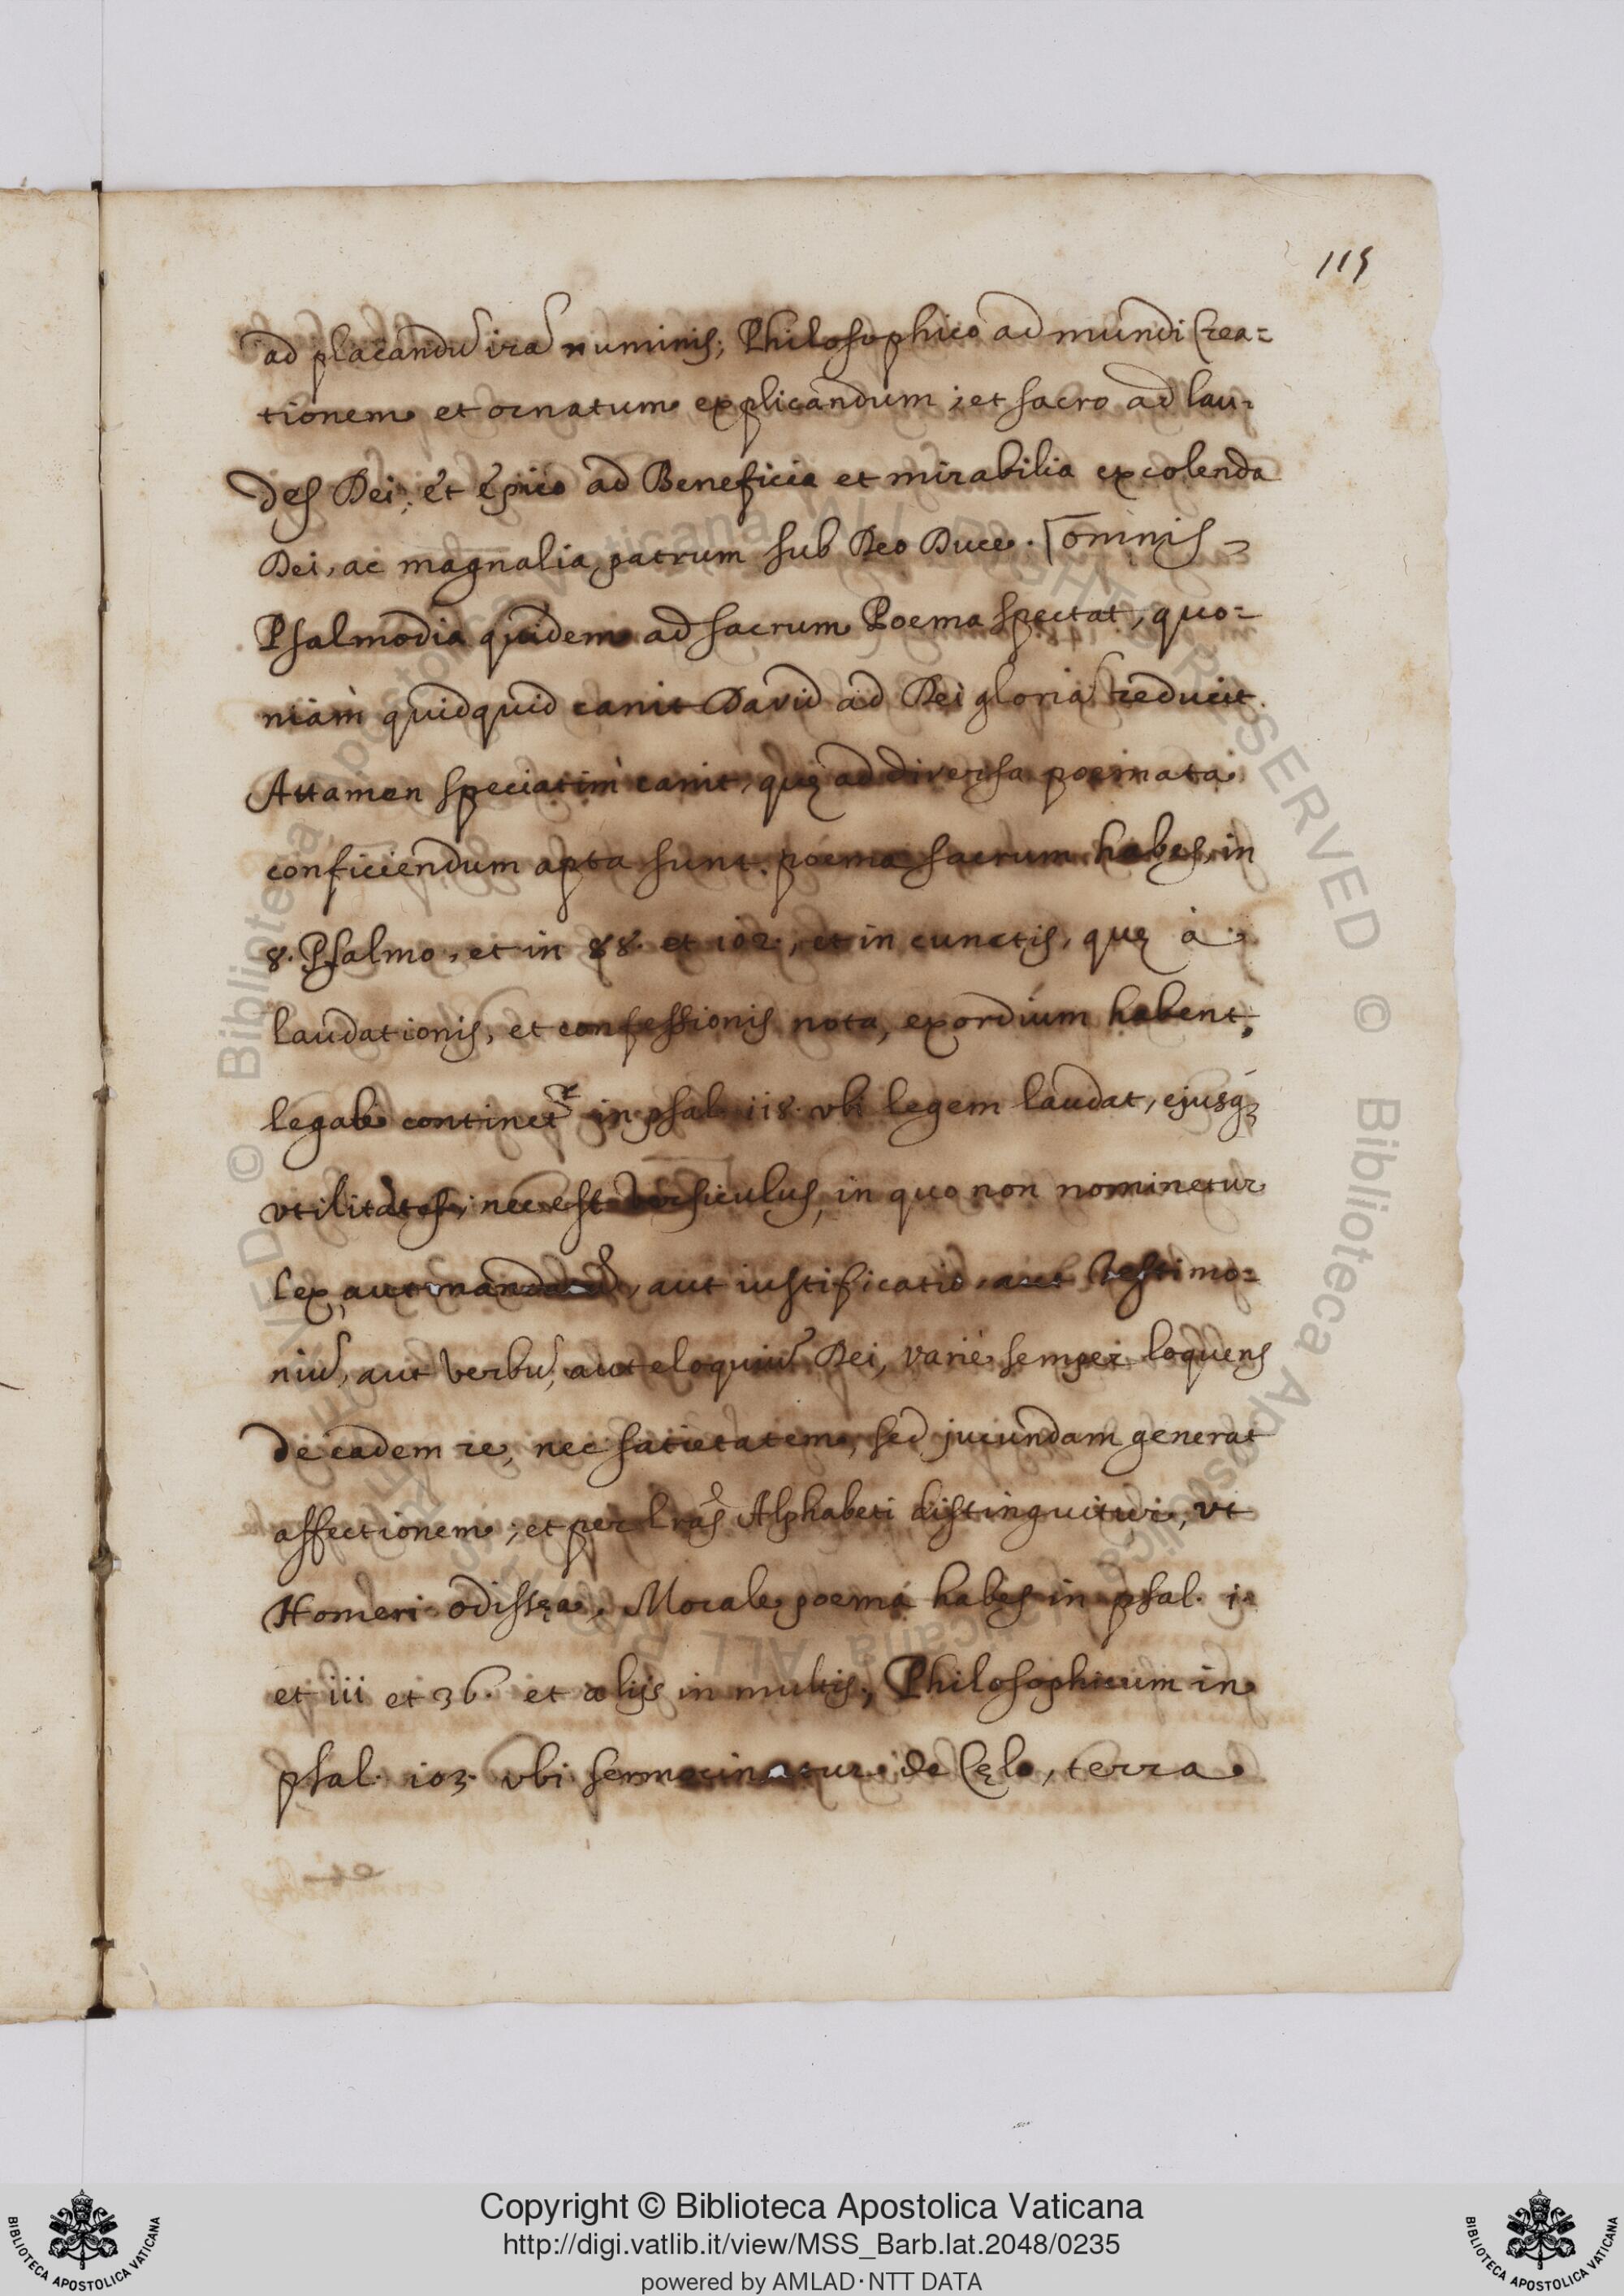 115
ad placandũ irã numinis; Philosophico ad mundi Crea=
tionem et ornatum explicandum; et sacro ad lau=
des Dei; et épico ad Beneficia et mirabilia excolenda
Dei, ac magnalia patrum sub Deo Duce. [omnis
Psalmodia quidem ad sacrum Poema spectat, quo=
niam quidquid canit David ad Dei gloriã reducit.
Attamen speciatim canit, quę ad diversa poemata
conficiendum apta sunt. poema sacrum habes in
8. Psalmo, et in 88. et 102, et in cunctis, quę à
laudationis, et confessionis nota, exordium habent;
legale continet^r in psal. 118. vbi legem laudat, ejusq;
vtilitates, nec est versiculus, in quo non nominetur
lex, aut mandatũ, aut iustificatio, aut testimo=
niũ, aut verbũ, aut eloquiũ Dei, varie semper loquens
de eadem re, nec satietatem, sed jucundam generat
affectionem; et per lrãs Alphabeti distinguitur, vt
Homeri odissęa. Morale poema habes in psal. i
et iii et 36. et alijs in multis; Philosophicum in
psal. 103. vbi sermocinatur de Cęlo, terra
© Biblioteca Apostolica Vaticana ALL RIGHTS RESERVED © Biblioteca Apostolica Vaticana ALL RIGHTS RESERVED
Copyright © Biblioteca Apostolica Vaticana
http://digi.vatlib.it/view/MSS_Barb.lat.2048/0235
powered by AMLAD·NTT DATA
BIBLIOTECA APOSTOLICA VATICANA
BIBLIOTECA APOSTOLICA VATICANA